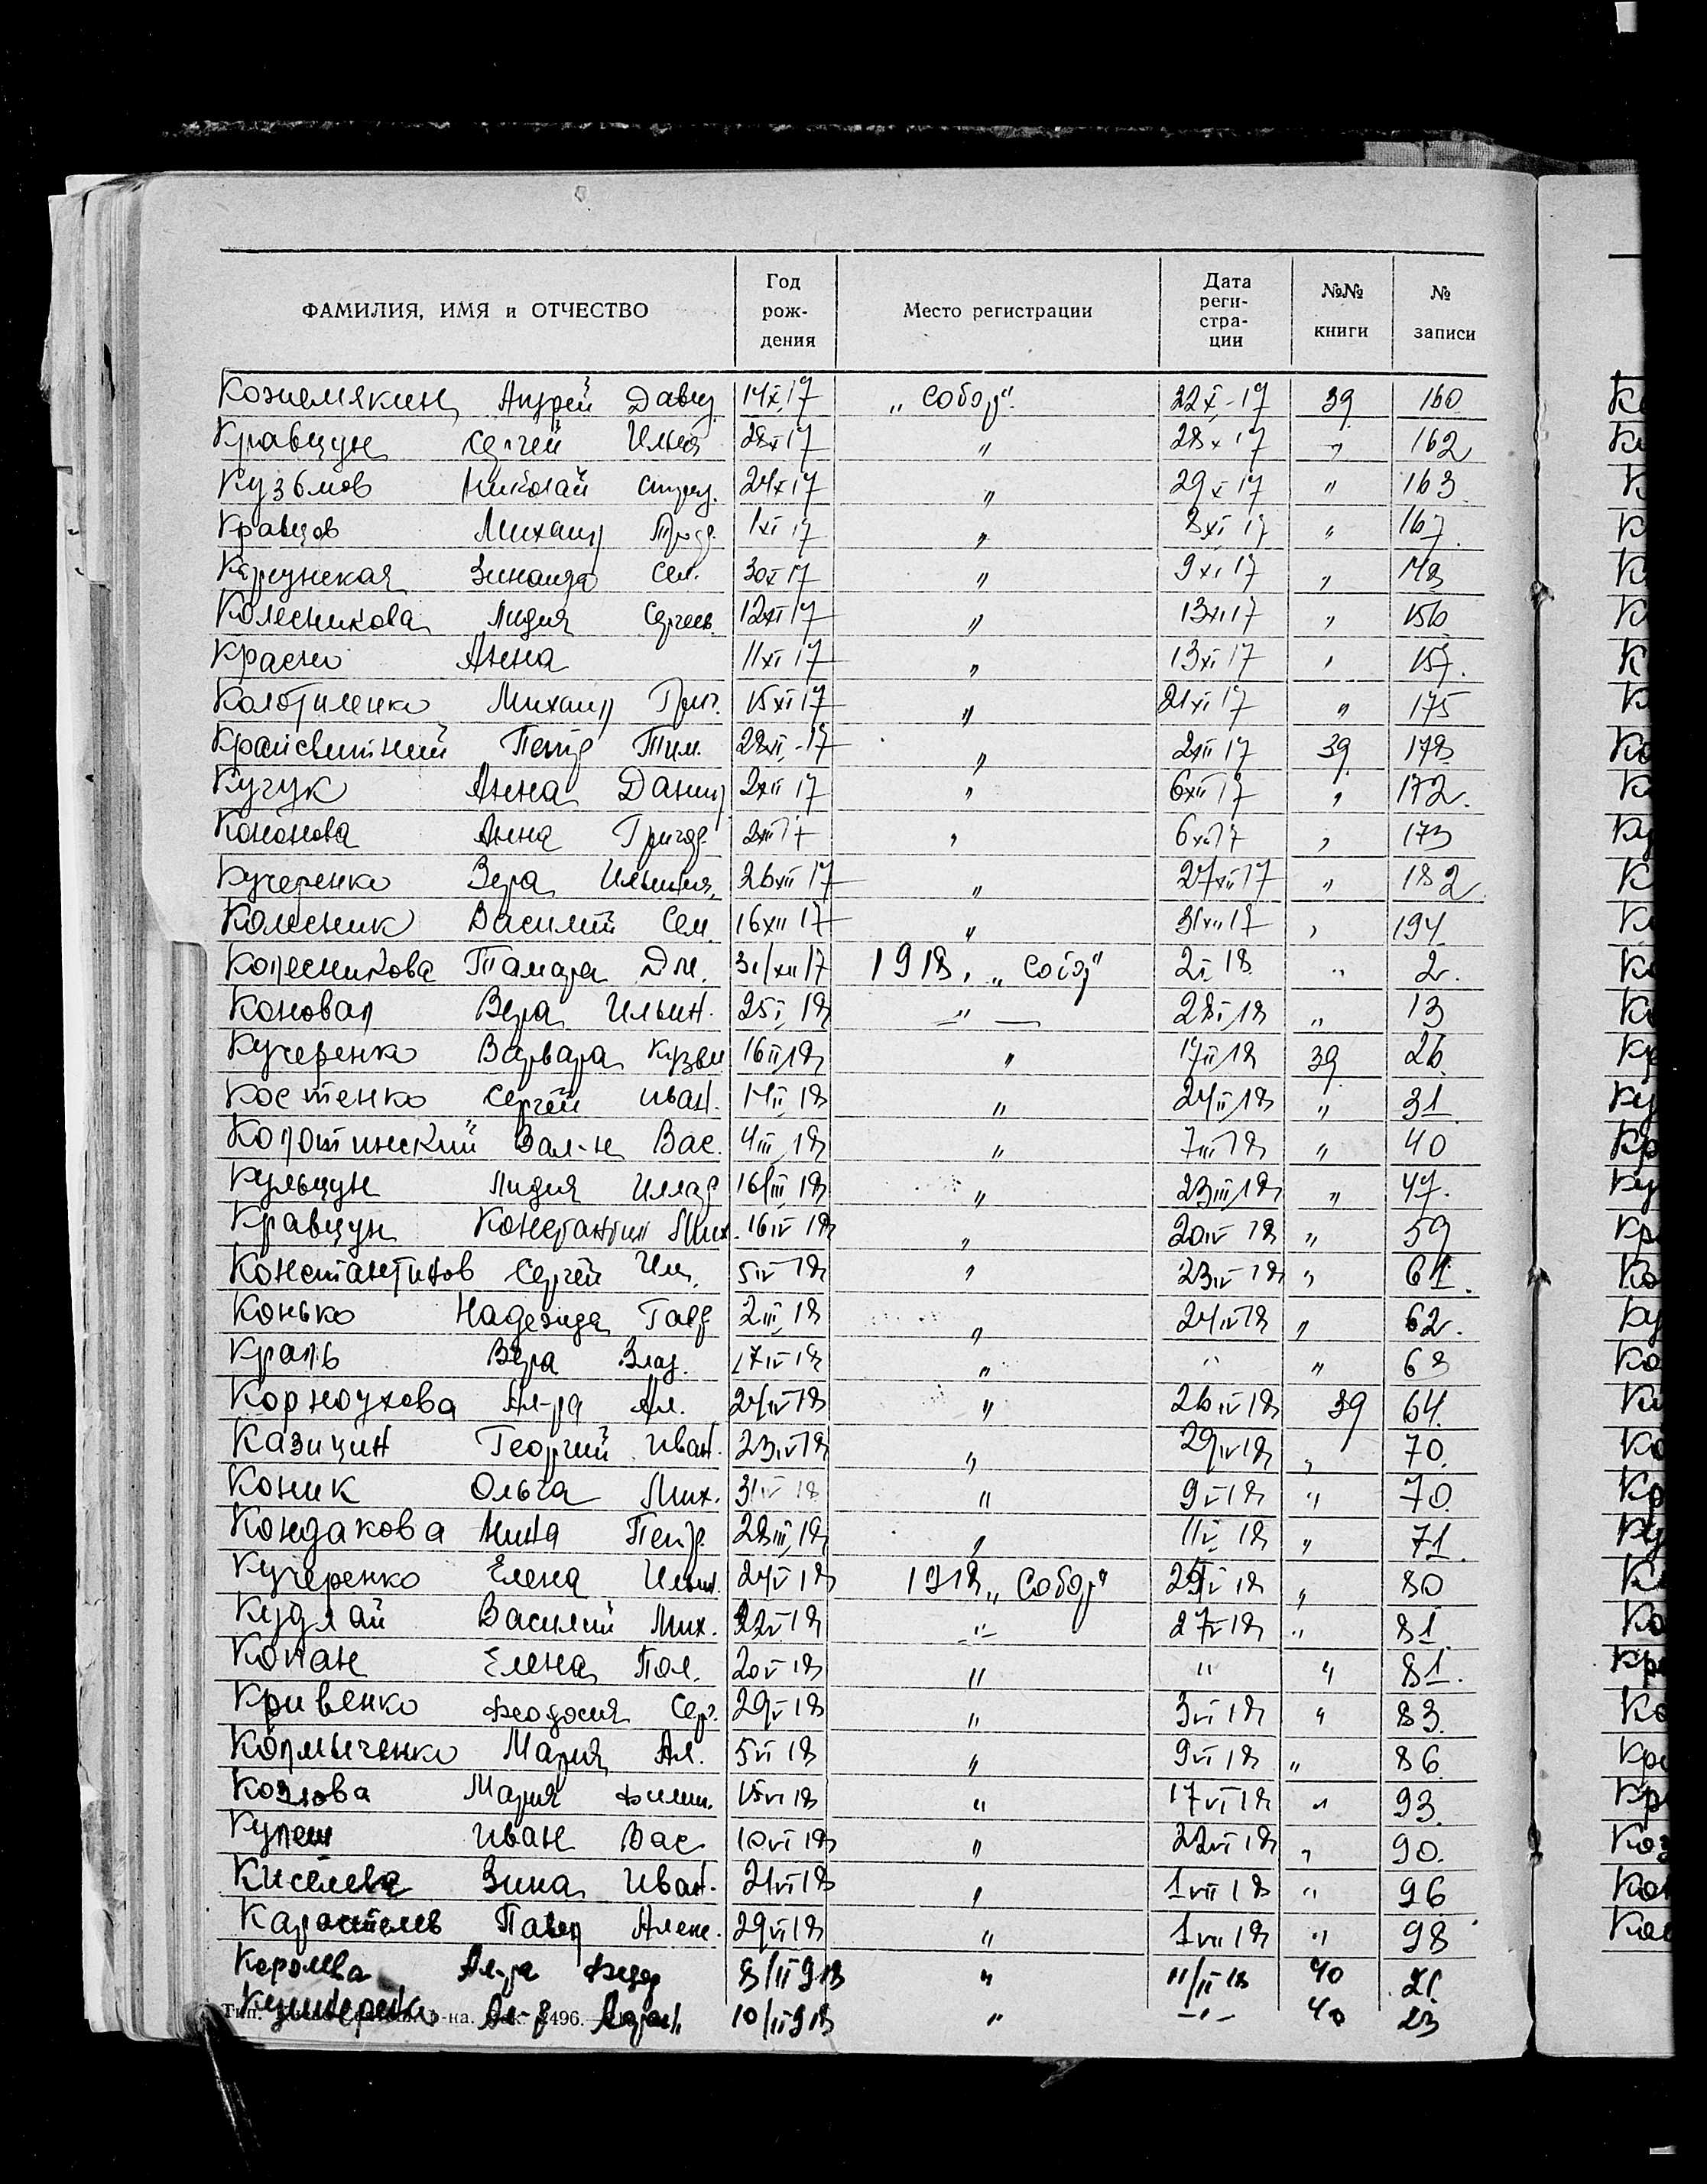 ФАМИЛИЯ, ИМЯ и ОТЧЕСТВО Год рож- дения Место регистрации Дата реги- стра- ции №№ книги № записи
Кожемякин Андрей Давид. 14 X 17 „Собор". 22 X-17 39 160
Кравцун Сергей Ильич 28 X 17 " 28 X 17 " 162
Кузьмов Николай 24 X 17 " 29 X 17 " 163
Кравцов Михаил 1 XI 17 " 8 XI 17 " 167
Зинаида Сем. 30 X 17 " 9 XI 17 "
Колесникова Лидия Сергеев. 12 XI 17 " 13 XI 17 " 156
Анна 11 XI 17 " 13 XI 17 " 157.
Колотиленко Михаил Григ. 15 XI 17 " 21 XI 17 " 175
Крайсвитний Петр Тим. 28 XI-17 " 2 XII 17 39 178
Кучук Анна Данил 2 XII 17 " 6 XII 17 " 172.
Кононова Анна Григор. 2 XII 17 " 6 XII 17 " 173
Кучеренко Вера Ильинич. 26 XII 17 " 27 XII 17 " 182
Колесник Василий Сем. 16 XII 17 " 31 XII 17 " 194
Колесникова Тамара Дм. 31/XII 17 1918. „Собор" 2 I 18 " 2.
Коновал Вера Ильин. 25 I 18 " 28 I 18 " 13
Кучеренко Варвара Кузьм 16 II 18 " 17 II 18 39 26.
Костенко Сергей Иван. 14 II 18 " 24 II 18 " 31
Колотинский Вал-н Вас. 4 III 18 " 7 III 18 " 40
Кульцун Лидия 16 III 18 " 23 III 18 " 47.
Кравцун Константин Мих. 16 IV 18 " 20 IV 18 " 59
Константинов Сергей Ил. 5 IV 18 " 23 IV 18 " 61.
Конько Надежда Гавр 2 III 18 " 24 IV 18 " 62.
Краль Вера Влад. 17 IV 18 " " " 63
Корноухова Ал-ра Ал. 24 IV 18 " 26 IV 18 39 64.
Казицин Георгий Иван. 23 IV 18 " 29 IV 18 " 70.
Коник Ольга Мих. " 9 V 18 " 70.
Кондакова Нина Петр. 28 III 18 " 11 V 18 " 71.
Кучеренко Елена Ильин. 24 V 18 1918 „Собор" " 80
Кудлай Василий Мих. 22 V 18 " 27 V 18 " 81.
Копан Елена Пол. 20 V 18 " " " 81.
Кривенко Феодосия Серг. 29 V 18 " 3 VI 18 " 83.
Колмыченко Мария Ал. 5 VI 18 " 9 VI 18 " 86.
Козлова Мария Филип. 15 VI 18 " 17 VI 18 " 93.
Кулеш Иван Вас. 10 VI 18 " 22 VI 18 " 90.
Киселева Зина Иван. 21 VI 18 " 1 VII 18 " 96
Каростелев Павел Алекс. 29 VI 18 " 1 VII 18 " 98
Королева Ал-ра Федор 8/II 918 " 11/II 18 40 21
Ал-р 10/II 918 " -"- 40 23